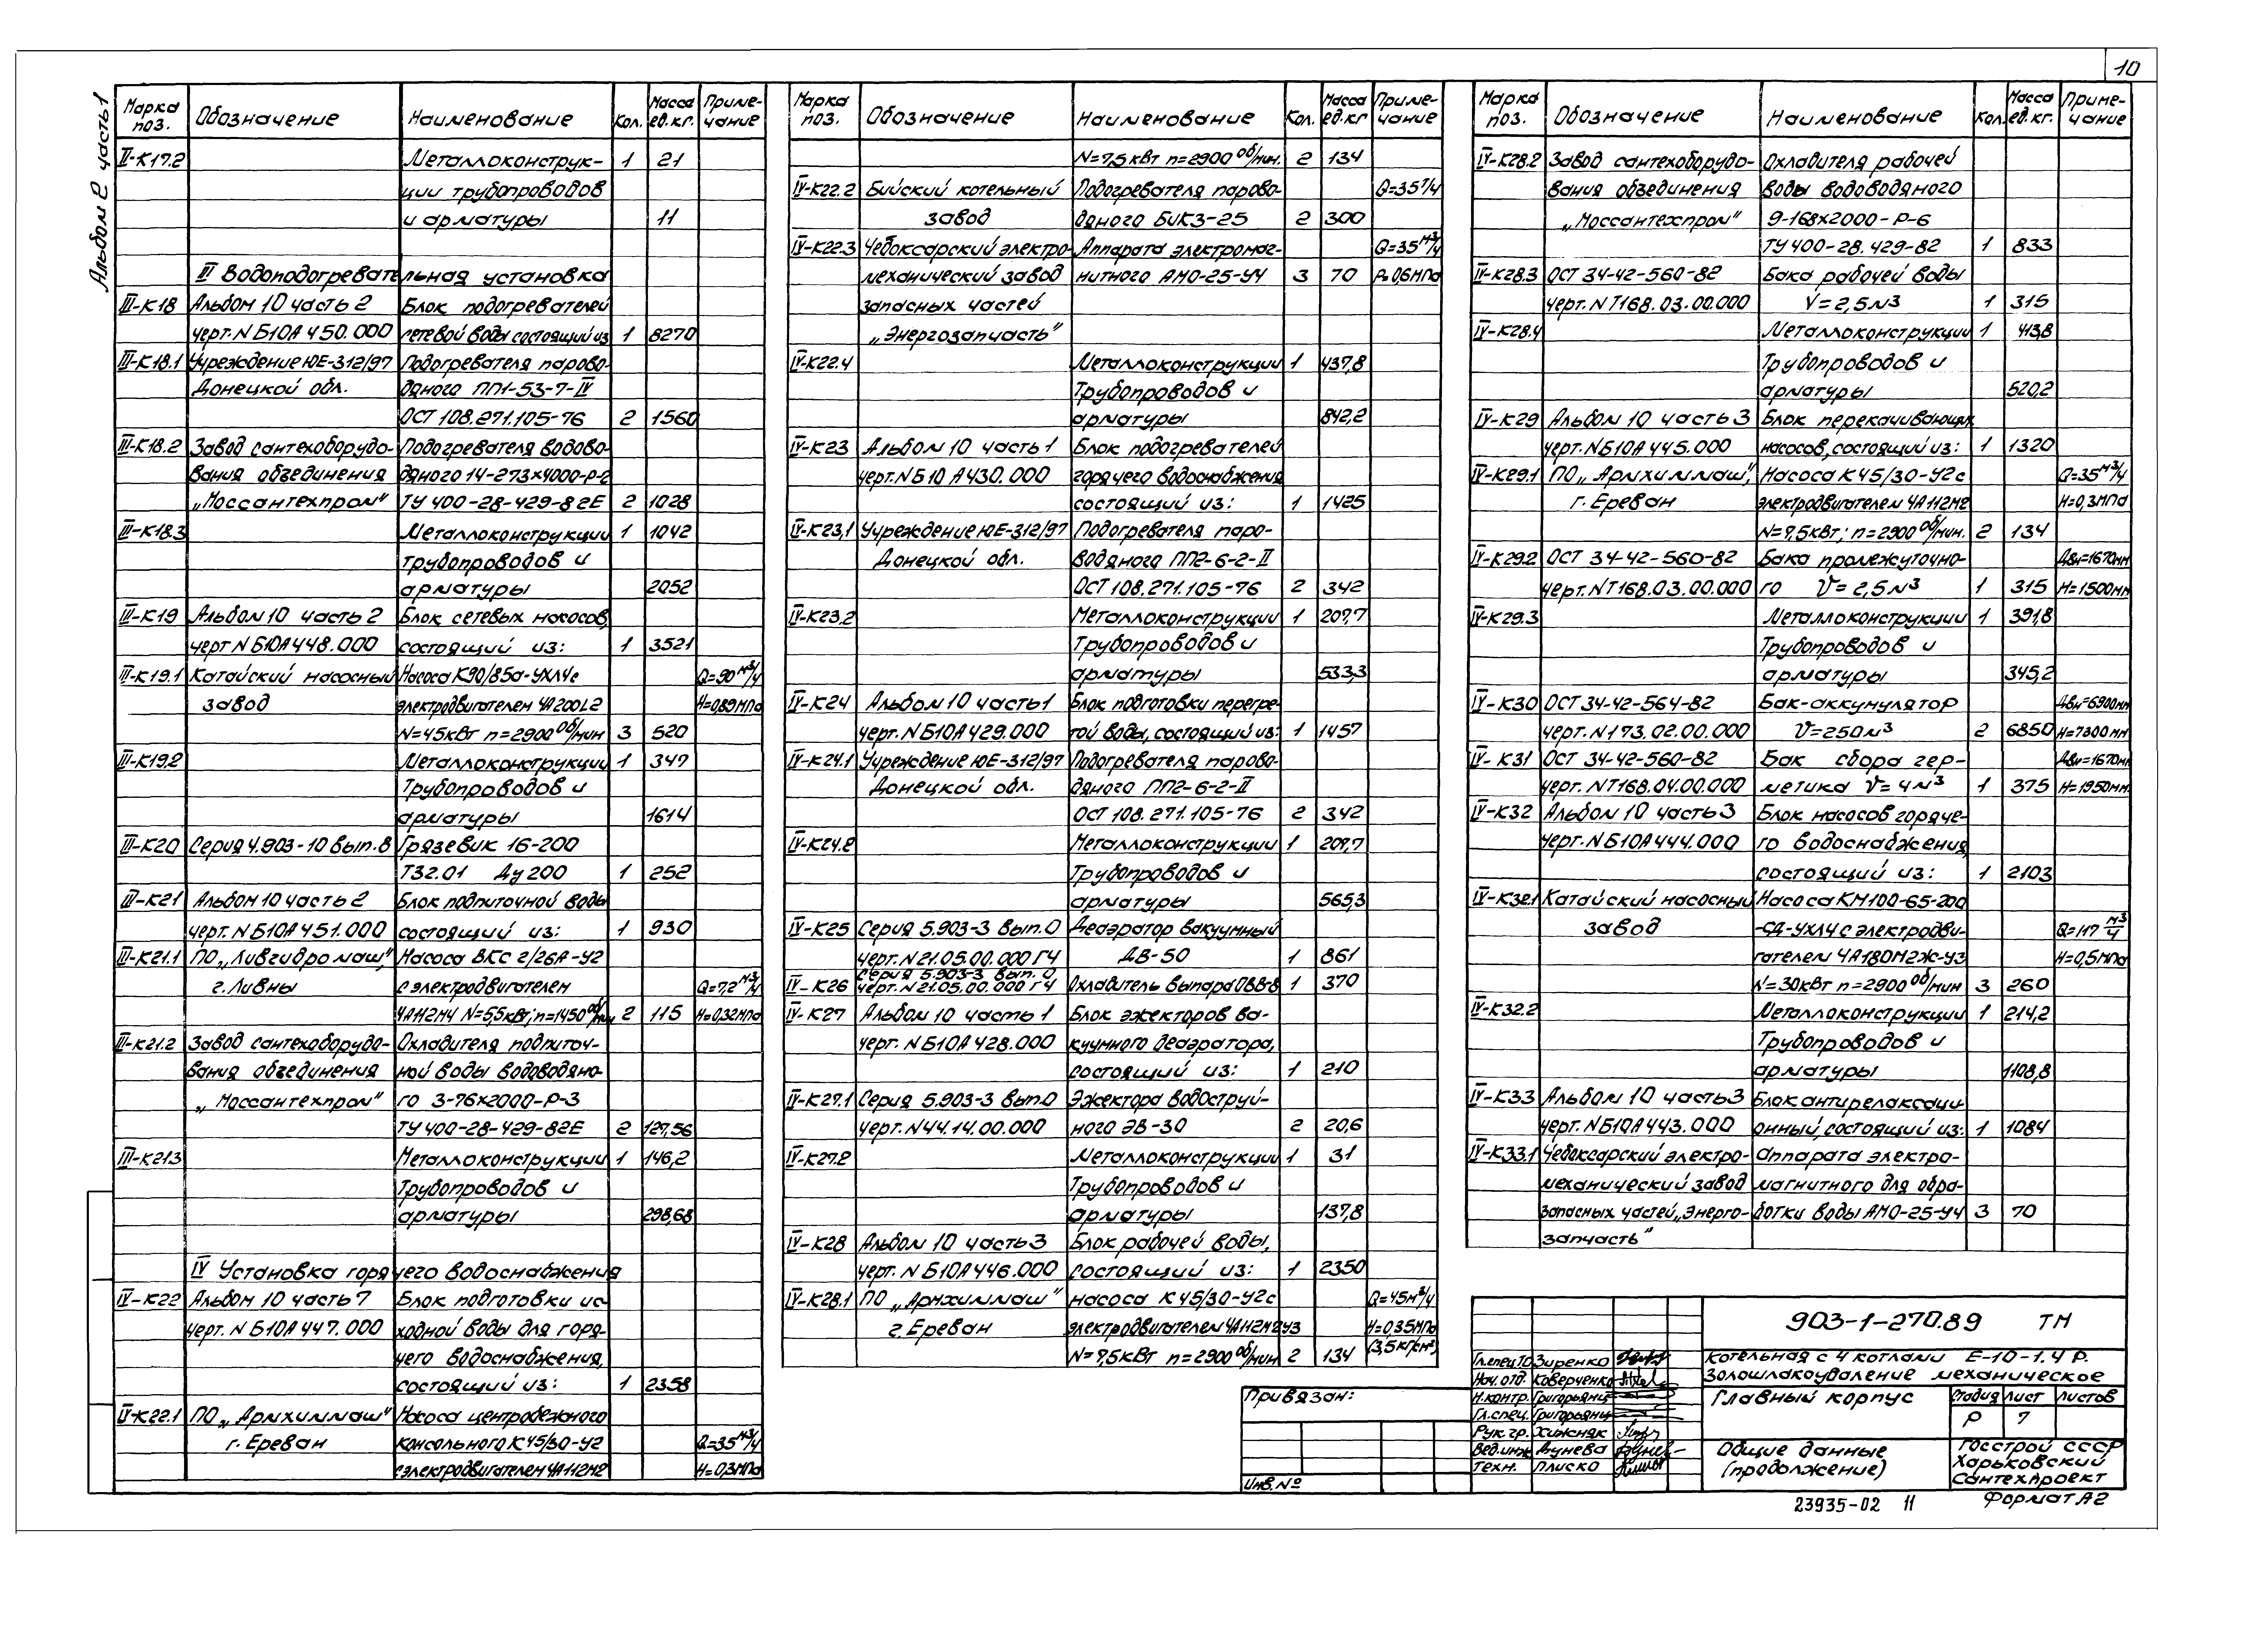 10
Альбом 2 часть 1
Марка поз. Обозначение Наименование Кол. Масса ед.кг. Приме-чание
II-К17.2 Металлоконструк- 1 21
ции трубопроводов
и арматуры 11
III Водоподогревательная установка
III-К18 Альбом 10 часть 2 Блок подогревателей
черт.N Б10А 450.000 сетевой воды состоящий из 1 8270
III-К18.1 Учреждение ЮЕ-312/97 Подогревателя парово-
Донецкой обл. дяного ПП1-53-7-IV
ОСТ 108.271.105-76 2 1560
III-К18.2 Завод сантехоборудо- Подогревателя водово-
вания объединения дяного 14-273х4000-Р-2
„Моссантехпром" ТУ 400-28-429-82Е 2 1028
III-К18.3 Металлоконструкции 1 1042
трубопроводов и
арматуры 2052
III-К19 Альбом 10 часть 2 Блок сетевых насосов,
черт N Б10А 448.000 состоящий из: 1 3521
III-К19.1 Катайский насосный Насоса К90/85а-УХЛ4с Q=90 м3/ч
завод электродвигателем 4А200L2 Н=0,89МПа
N=45кВт n=2900 об/мин 3 520
III-К19.2 Металлоконструкции 1 347
Трубопроводов и
арматуры 1614
III-К20 Серия 4.903-10 вып.8 Грязевик 16-200
Т32.01 Ду 200 1 252
III-К21 Альбом 10 часть 2 Блок подпиточной воды
черт.N Б10А 451.000 состоящий из: 1 930
III-К21.1 ПО „Ливгидромаш", Насоса ВКС 2/26А-У2
г.Ливны с электродвигателем Q=7,2 м3/ч
4А112М4 N=5,5кВт; n=1450 об/мин 2 115 Н=0,32МПа
III-К21.2 Завод сантехоборудо- Охладителя подпиточ-
вания объединения ной воды водоводяно-
„Моссантехпром" го 3-76х2000-Р-3
ТУ 400-28-429-82Е 2 127,56
III-К21.3 Металлоконструкции 1 146,2
Трубопроводов и
арматуры 298,68
IV Установка горячего водоснабжения
IV-К22 Альбом 10 часть 7 Блок подготовки ис-
черт. N Б10А 447.000 ходной воды для горя-
чего водоснабжения,
состоящий из: 1 2358
IV-К22.1 ПО „Армхиммаш" Насоса центробежного
г. Ереван консольного К45/30-У2 Q=35 м3/ч
сэлектродвигателем 4А112М2 Н=0,3МПа
Марка поз. Обозначение Наименование Кол. Масса ед.кг Приме-чание
N=7,5 кВт n=2900 об/мин. 2 134
IV-К22.2 Бийский котельный Подогревателя парово- Q=35 т/ч
завод дяного БиКЗ-25 2 300
IV-К22.3 Чебоксарский электро- Аппарата электромаг- Q=35 м3/ч
механический завод нитного АМО-25-УЧ 3 70 Р=0,6МПа
запасных частей
„Энергозапчасть"
IV-К22.4 Металлоконструкции 1 437,8
Трубопроводов и
арматуры 842,2
IV-К23 Альбом 10 часть 1 Блок подогревателей
черт.N Б10 А430.000 горячего водоснабжения
состоящий из: 1 1425
IV-К23,1 Учреждение ЮЕ-312/97 Подогревателя паро-
Донецкой обл. водяного ПП2-6-2-II
ОСТ 108.271.105-76 2 342
IV-К23,2 Металлоконструкции 1 207,7
Трубопроводов и
арматуры 533,3
IV-К24 Альбом 10 часть 1 Блок подготовки перегре-
черт.N Б10А 429.000 той воды, состоящий из: 1 1457
IV-К24.1 Учреждение ЮЕ-312/97 Подогревателя парово-
Донецкой обл. дяного ПП2-6-2-II
ОСТ 108.271.105-76 2 342
IV-К24.2 Металлоконструкции 1 207,7
Трубопроводов и
арматуры 565,3
IV-К25 Серия 5.903-3 вып.0 Деаэратор вакуумный
черт.N 21.05.00.000 ГЧ ДВ-50 1 861
Серия 5.903-3 вып. 0
IV-К26 черт. N 21.05.00.000 ГЧ Охладитель выпара ОВВ-8 1 370
IV-К27 Альбом 10 часть 1 Блок эжекторов ва-
черт. N Б10А 428.000 куумного деаэратора,
состоящий из: 1 210
IV-К27.1 Серия 5.903-3 вып.0 Эжектора водоструй-
черт.N 44.14.00.000 ного ЭВ-30 2 20,6
IV-К27.2 Металлоконструкции 1 31
Трубопроводов и
арматуры 137,8
IV-К28 Альбом 10 часть 3 Блок рабочей воды,
черт. N Б10А 446.000 состоящий из: 1 2350
IV-К28.1 ПО „Армхиммаш" насоса К45/30-У2с Q=45 м3/ч
г. Ереван электродвигателем 4А112М2У3 Н=0,35МПа
N=7,5кВт n=2900 об/мин 2 134 (3,5 кгс/см²)
Марка поз. Обозначение Наименование Кол. Масса ед.кг. Приме-чание
IV-К28.2 Завод сантехоборудо- Охладителя рабочей
вания объединения воды водоводяного
„Моссантехпром" 9-168х2000-Р-6
ТУ 400-28.429-82 1 833
IV-К28.3 ОСТ 34-42-560-82 Бака рабочей воды
черт.N Т168.03.00.000 V=2,5м3 1 315
IV-К28.4 Металлоконструкции 1 413,8
Трубопроводов и
арматуры 520,2
IV-К29 Альбом 10 часть 3 Блок перекачивающих
черт.N Б10А 445.000 насосов, состоящий из: 1 1320
IV-К29.1 ПО „Армхиммаш", Насоса К45/30-У2с Q=35 м3/ч
г. Ереван электродвигателем 4А112М2 Н=0,3МПа
N=7,5кВт; n=2900 об/мин. 2 134
IV-К29.2 ОСТ 34-42-560-82 Бака промежуточно- Двн=1670мм
черт.N Т168.03.00.000 го V=2,5м3 1 315 Н=1500мм
IV-К29.3 Металлоконструкции 1 391,8
Трубопроводов и
арматуры 345,2
IV-К30 ОСТ 34-42-564-82 Бак-аккумулятор Двн=6900мм
черт.N 173.02.00.000 V=250м3 2 6850 Н=7300мм
IV-К31 ОСТ 34-42-560-82 Бак сбора гер- Двн=1670мм
черт. N Т168.04.00.000 метика V=4м3 1 375 Н=1950мм
IV-К32 Альбом 10 часть 3 Блок насосов горяче-
черт. N Б10А 444.000 го водоснабжения,
состоящий из: 1 2103
IV-К32.1 Катайский насосный Насоса КМ100-65-200
завод -СД-УХЛ4 с электродви- Q=117 м3/ч
гателем 4А180М2Ж-У3 Н=0,5МПа
N=30кВт n=2900 об/мин 3 260
IV-К32.2 Металлоконструкции 1 214,2
Трубопроводов и
арматуры 1108,8
IV-К33 Альбом 10 часть 3 Блок антирелаксаци-
черт. N Б10А 443.000 онный, состоящий из: 1 1084
IV-К33.1 Чебоксарский электро- аппарата электро-
механический завод магнитного для обра-
запасных частей „Энерго- ботки воды АМО-25-УЧ 3 70
запчасть"
903-1-270.89 ТМ
Котельная с 4 котлами Е-10-1.4 Р.
Золошлакоудаление механическое
Гл.спец.ТО Зиренко
Нач.отд. Коверченко
Н.контр. Григорьянц
Гл.спец. Григорьянц
Рук.гр. Хижняк
Вед.инж Дунева
Техн. Плиско
Главный корпус
Стадия Лист Листов
Р 7
Общие данные
(продолжение)
Госстрой СССР
Харьковский
Сантехпроект
Привязан:
Инв.№
23935-02 11
Формат А2